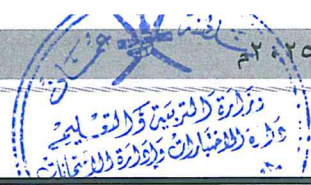 سلطنة عُمان
٢٠٢٥م
وزارة التربية والتعليم
دارة الاختبارات وإدارة الامتحانات